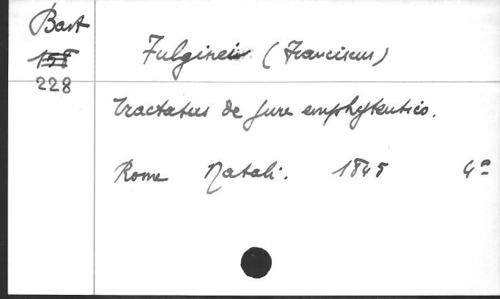 Bart
228
Fulginei (Franciscus)
Tractatus de jure emphyteutico.
Rome Natali. 1845 4º